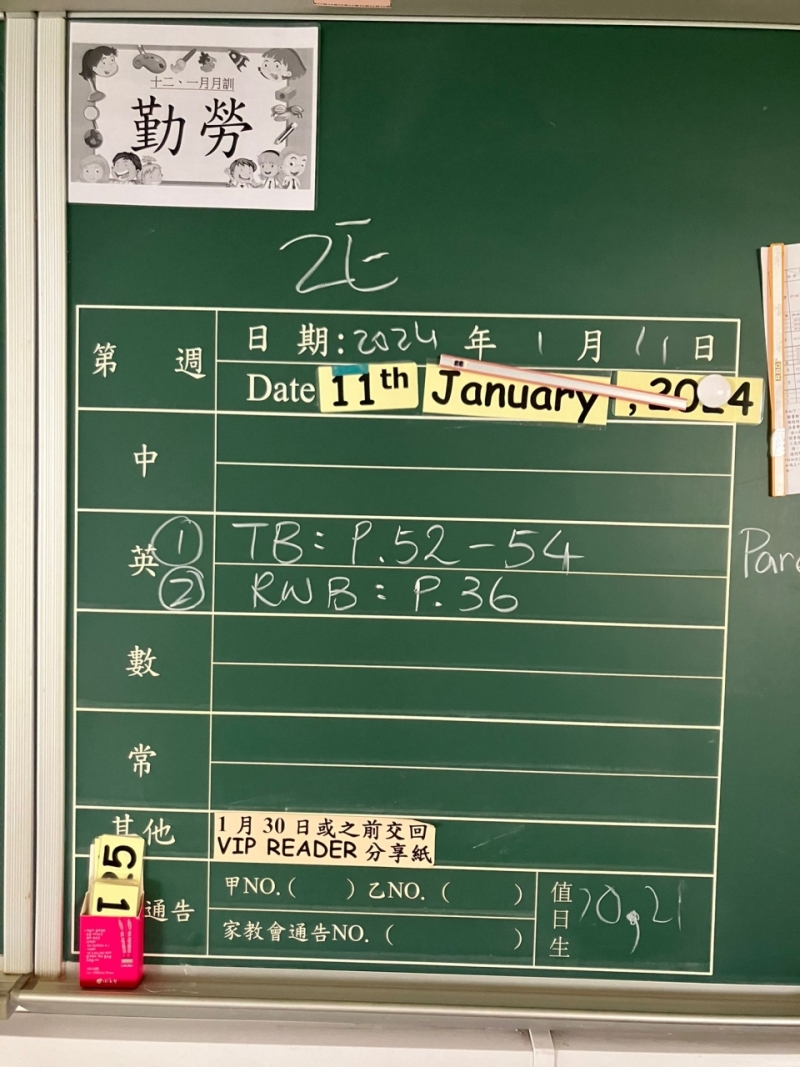 十二、一月月訓
勤勞
2E
第 週
日 期:2024 年 1 月 11 日
Date 11th January, 2024
中
英 ① TB: P.52-54
② RWB: P.36
Para
數
常
其他
1 月 30 日或之前交回
VIP READER 分享紙
通告
甲NO.( ) 乙NO. ( )
家教會通告NO. ( )
值日生 20,21